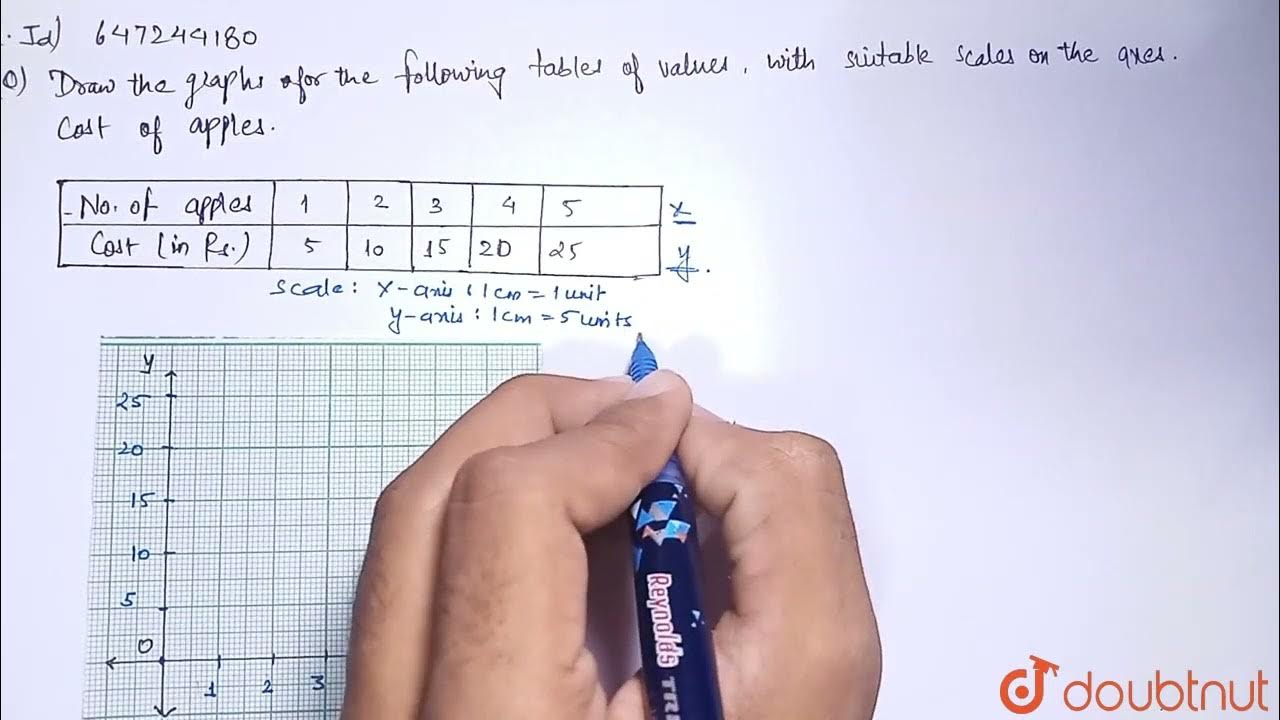 . Id) 647244180
Q) Draw the graphs for the following tables of values, with suitable scales on the axes.
Cost of apples.
No. of apples 1 2 3 4 5 x
Cost (in Rs.) 5 10 15 20 25 y.
Scale: x-axis : 1 cm = 1 unit
y-axis : 1 cm = 5 units
y
25
20
15
10
5
0
1 2 3
Reynolds TRI
doubtnut